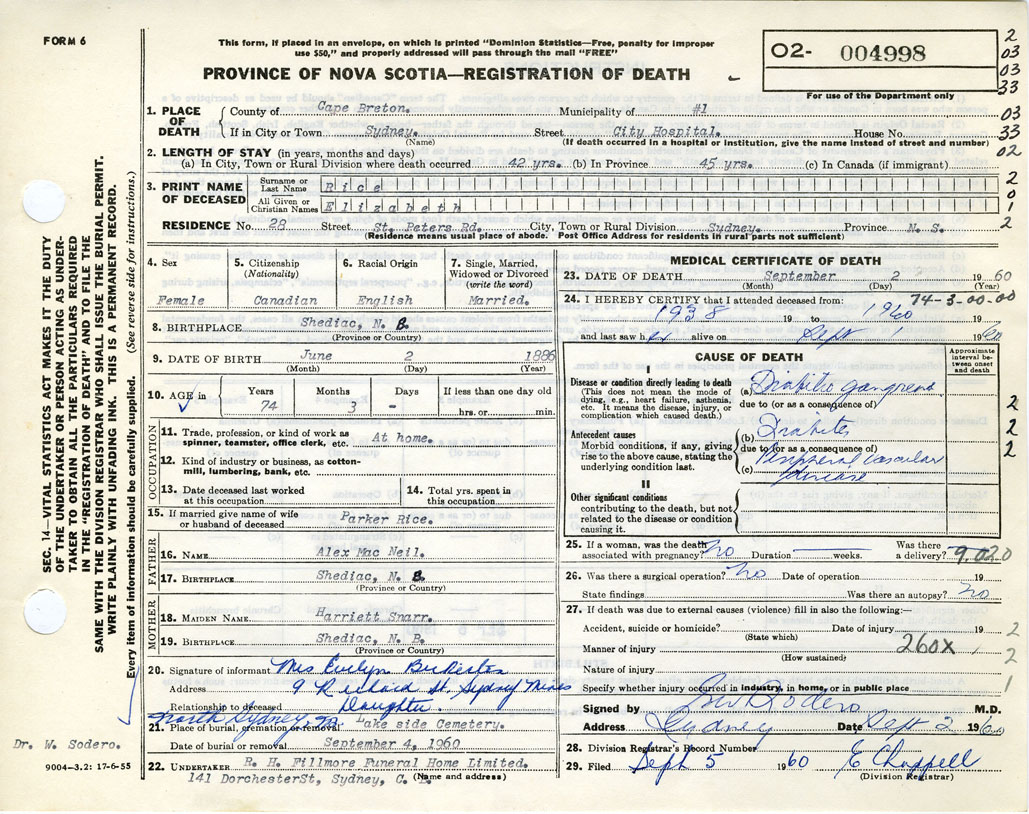 FORM 6
This form, if placed in an envelope, on which is printed "Dominion Statistics—Free, penalty for improper
use $50," and properly addressed will pass through the mail "FREE"
PROVINCE OF NOVA SCOTIA—REGISTRATION OF DEATH
02- 004998
For use of the Department only
2
03
03
33
03
33
02
2
0
1
2
SEC. 14—VITAL STATISTICS ACT MAKES IT THE DUTY
OF THE UNDERTAKER OR PERSON ACTING AS UNDER-
TAKER TO OBTAIN ALL THE PARTICULARS REQUIRED
IN THE "REGISTRATION OF DEATH" AND TO FILE THE
SAME WITH THE DIVISION REGISTRAR WHO SHALL ISSUE THE BURIAL PERMIT.
WRITE PLAINLY WITH UNFADING INK. THIS IS A PERMANENT RECORD.
Every item of information should be carefully supplied. (See reverse side for instructions.)
1. PLACE OF DEATH County of Cape Breton. Municipality of #1
If in City or Town Sydney. Street City Hospital. House No.
(Name) (If death occurred in a hospital or institution, give the name instead of street and number)
2. LENGTH OF STAY (in years, months and days)
(a) In City, Town or Rural Division where death occurred 42 yrs. (b) In Province 45 yrs. (c) In Canada (if immigrant)
3. PRINT NAME OF DECEASED Surname or Last Name Rice
All Given or Christian Names Elizabeth
RESIDENCE No. 28 Street St. Peters Rd. City, Town or Rural Division Sydney. Province N. S.
(Residence means usual place of abode. Post Office Address for residents in rural parts not sufficient)
4. Sex 5. Citizenship (Nationality) 6. Racial Origin 7. Single, Married, Widowed or Divorced (write the word)
Female Canadian English Married.
8. BIRTHPLACE Shediac, N. B.
(Province or Country)
9. DATE OF BIRTH June 2 1886
(Month) (Day) (Year)
10. AGE in Years Months Days If less than one day old
74 3 - hrs. or min.
OCCUPATION
11. Trade, profession, or kind of work as spinner, teamster, office clerk, etc. At home.
12. Kind of industry or business, as cotton-mill, lumbering, bank, etc.
13. Date deceased last worked at this occupation 14. Total yrs. spent in this occupation
15. If married give name of wife or husband of deceased Parker Rice.
FATHER
16. NAME Alex Mac Neil.
17. BIRTHPLACE Shediac, N. B.
(Province or Country)
MOTHER
18. MAIDEN NAME Harriett Snarr.
19. BIRTHPLACE Shediac, N. B.
(Province or Country)
20. Signature of informant Mrs Evelyn
Address 9 Richard St. Sydney Mines
Relationship to deceased Daughter.
North Sydney,
21. Place of burial, cremation or removal Lake side Cemetery.
Date of burial or removal September 4, 1960
22. UNDERTAKER R. H. Fillmore Funeral Home Limited.
141 DorchesterSt, Sydney, C. B.
(Name and address)
Dr. W. Sodero.
9004-3.2: 17-6-55
MEDICAL CERTIFICATE OF DEATH
23. DATE OF DEATH September 2 1960
(Month) (Day) (Year)
24. I HEREBY CERTIFY that I attended deceased from: 74-3-00-00
1938 19 to 1960 19
and last saw her alive on Sept 1 1960
CAUSE OF DEATH
Approximate interval between onset and death
I
Disease or condition directly leading to death
(This does not mean the mode of dying, e.g., heart failure, asthenia, etc. It means the disease, injury, or complication which caused death.)
(a) Diabetic gangrene
due to (or as a consequence of)
Antecedent causes
Morbid conditions, if any, giving rise to the above cause, stating the underlying condition last.
(b) Diabetes
due to (or as a consequence of)
(c) Peripheral vascular
disease
II
Other significant conditions
contributing to the death, but not related to the disease or condition causing it.
2
2
2
25. If a woman, was the death associated with pregnancy? no Duration weeks. Was there a delivery?
9.020
26. Was there a surgical operation? no Date of operation 19
State findings Was there an autopsy? no
27. If death was due to external causes (violence) fill in also the following:—
Accident, suicide or homicide? Date of injury 19
(State which)
Manner of injury 260X
(How sustained)
Nature of injury
Specify whether injury occurred in industry, in home, or in public place
2
2
1
Signed by Sodero M.D.
Address Sydney Date Sept 2 1960
28. Division Registrar's Record Number
29. Filed Sept 5 1960 E Chappell
(Division Registrar)